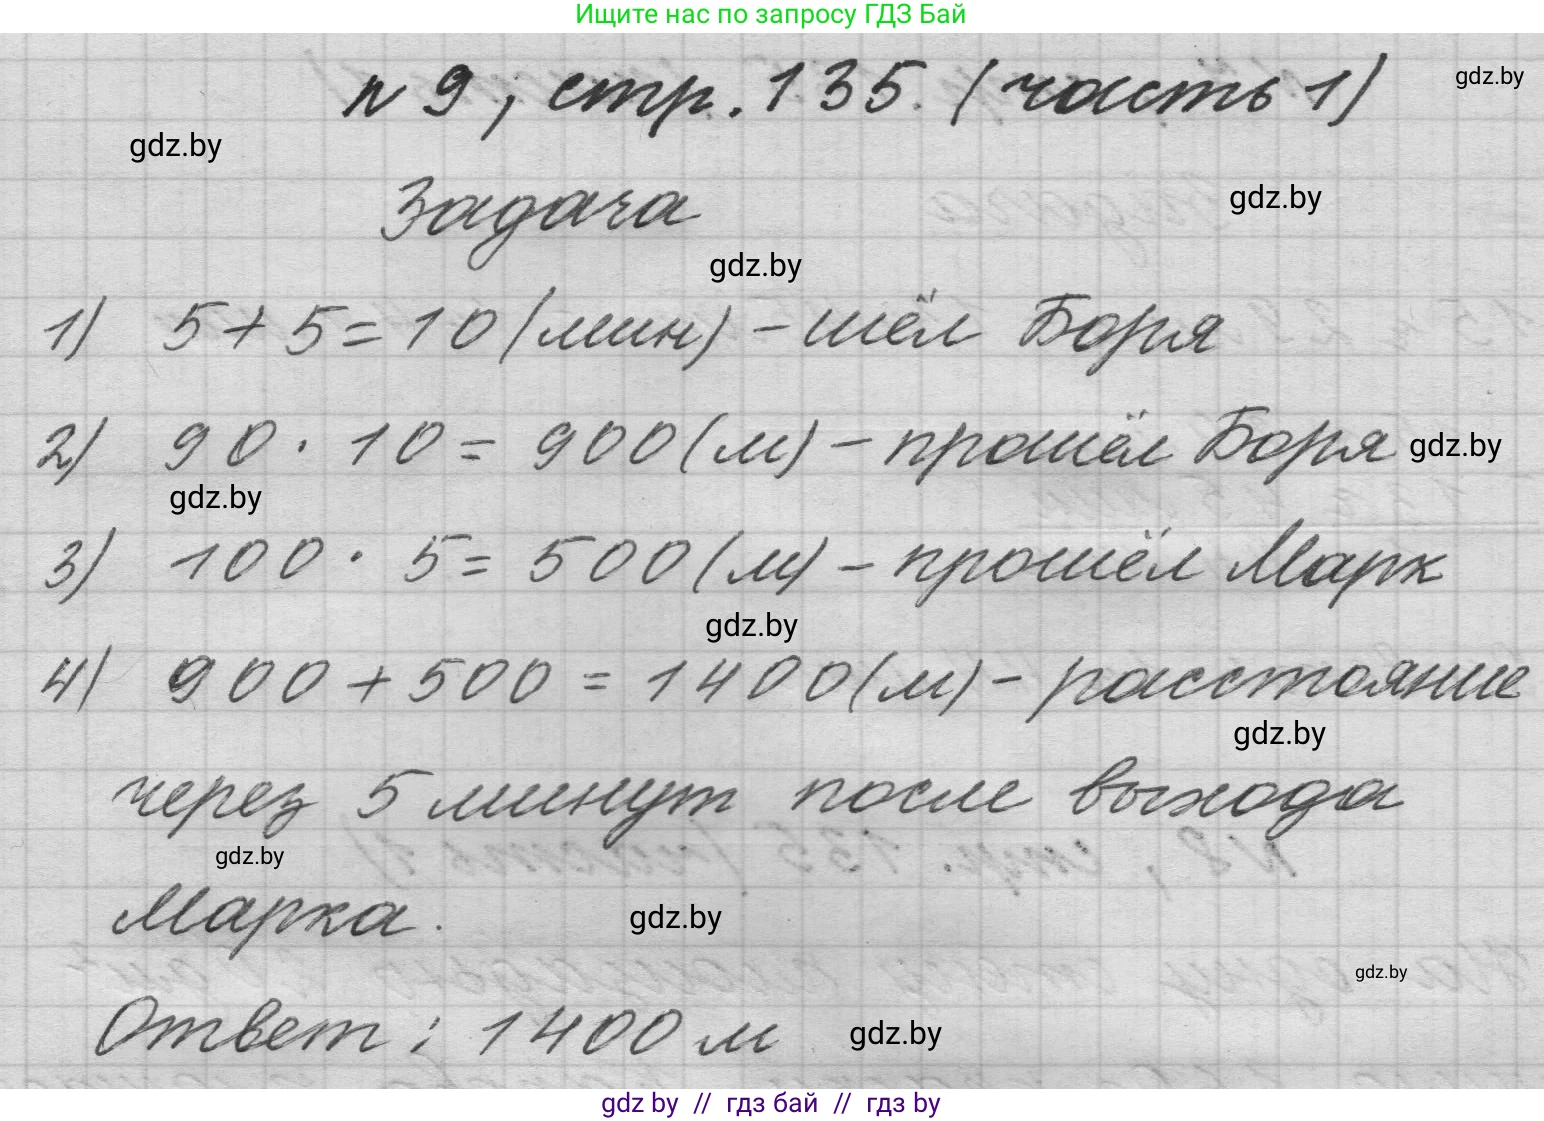 Ищите нас по запросу ГДЗ Бай
n 9, стр. 135. (часть 1)
gdz.by
gdz.by
Задача
gdz.by
gdz.by
1) 5+5=10 (мин) - шёл Боря
2) 90 · 10 = 900 (м) - прошёл Боря
gdz.by
gdz.by
3) 100 · 5 = 500 (м) - прошёл Марк
gdz.by
4) 900 + 500 = 1400 (м) - расстояние
gdz.by
через 5 минут после выхода
gdz.by
Марка.
gdz.by
gdz.by
Ответ: 1400 м
gdz.by
gdz by // гдз бай // гдз by